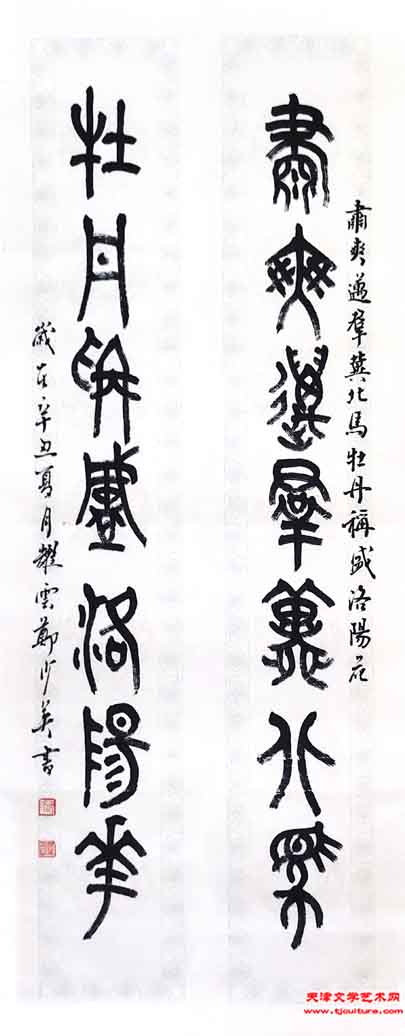 肅爽邁羣冀北馬牡丹稱盛洛陽花
肅爽邁羣冀北馬
牡丹稱盛洛陽華
歲在辛丑夏月雲鄭少英書
天津文学艺术网
www.tjculture.com